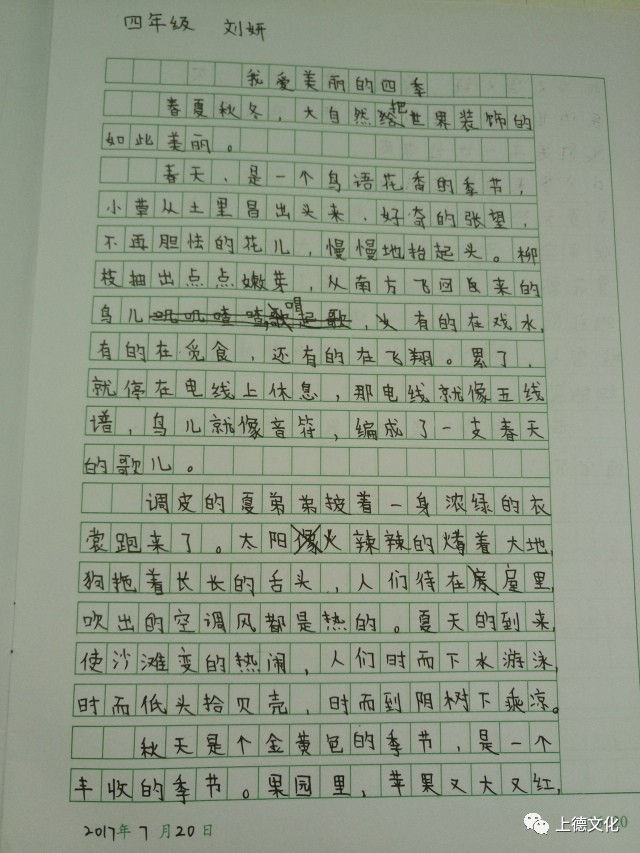 四年级 刘妍
我爱美丽的四季
春夏秋冬，大自然把世界装饰的
如此美丽。
春天，是一个鸟语花香的季节，
小草从土里冒出头来，好奇的张望，
不再胆怯的花儿，慢慢地抬起头。柳
枝抽出点点嫩芽，从南方飞回来的
鸟儿叽叽喳喳，唱起歌，有的在戏水，
有的在觅食，还有的在飞翔。累了，
就停在电线上休息，那电线就像五线
谱，鸟儿就像音符，编成了一支春天
的歌儿。
调皮的夏弟弟披着一身浓绿的衣
裳跑来了。太阳火辣辣的烤着大地，
狗拖着长长的舌头，人们待在房屋里，
吹出的空调风都是热的。夏天的到来，
使沙滩变的热闹，人们时而下水游泳，
时而低头拾贝壳，时而到阴树下乘凉。
秋天是个金黄色的季节，是一个
丰收的季节。果园里，苹果又大又红，
2017年7月20日
上德文化